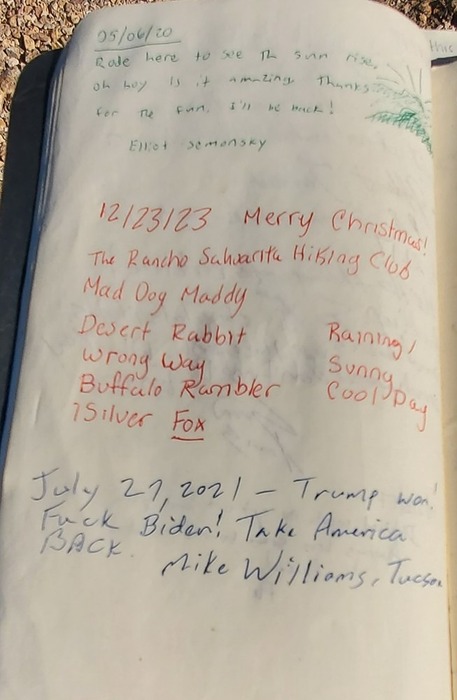 05/06/20
Rode here to see the sun rise,
oh boy is it amazing. Thanks
for the fun, I'll be back!
Elliot Semonsky
12/23/23 Merry Christmas!
The Rancho Sahuarita Hiking Club
Mad Dog Maddy
Desert Rabbit Raining/
Wrong Way Sunny
Buffalo Rambler Cool Day
Silver Fox
July 27, 2021 - Trump won!
Fuck Biden! Take America
BACK.
Mike Williams, Tucson